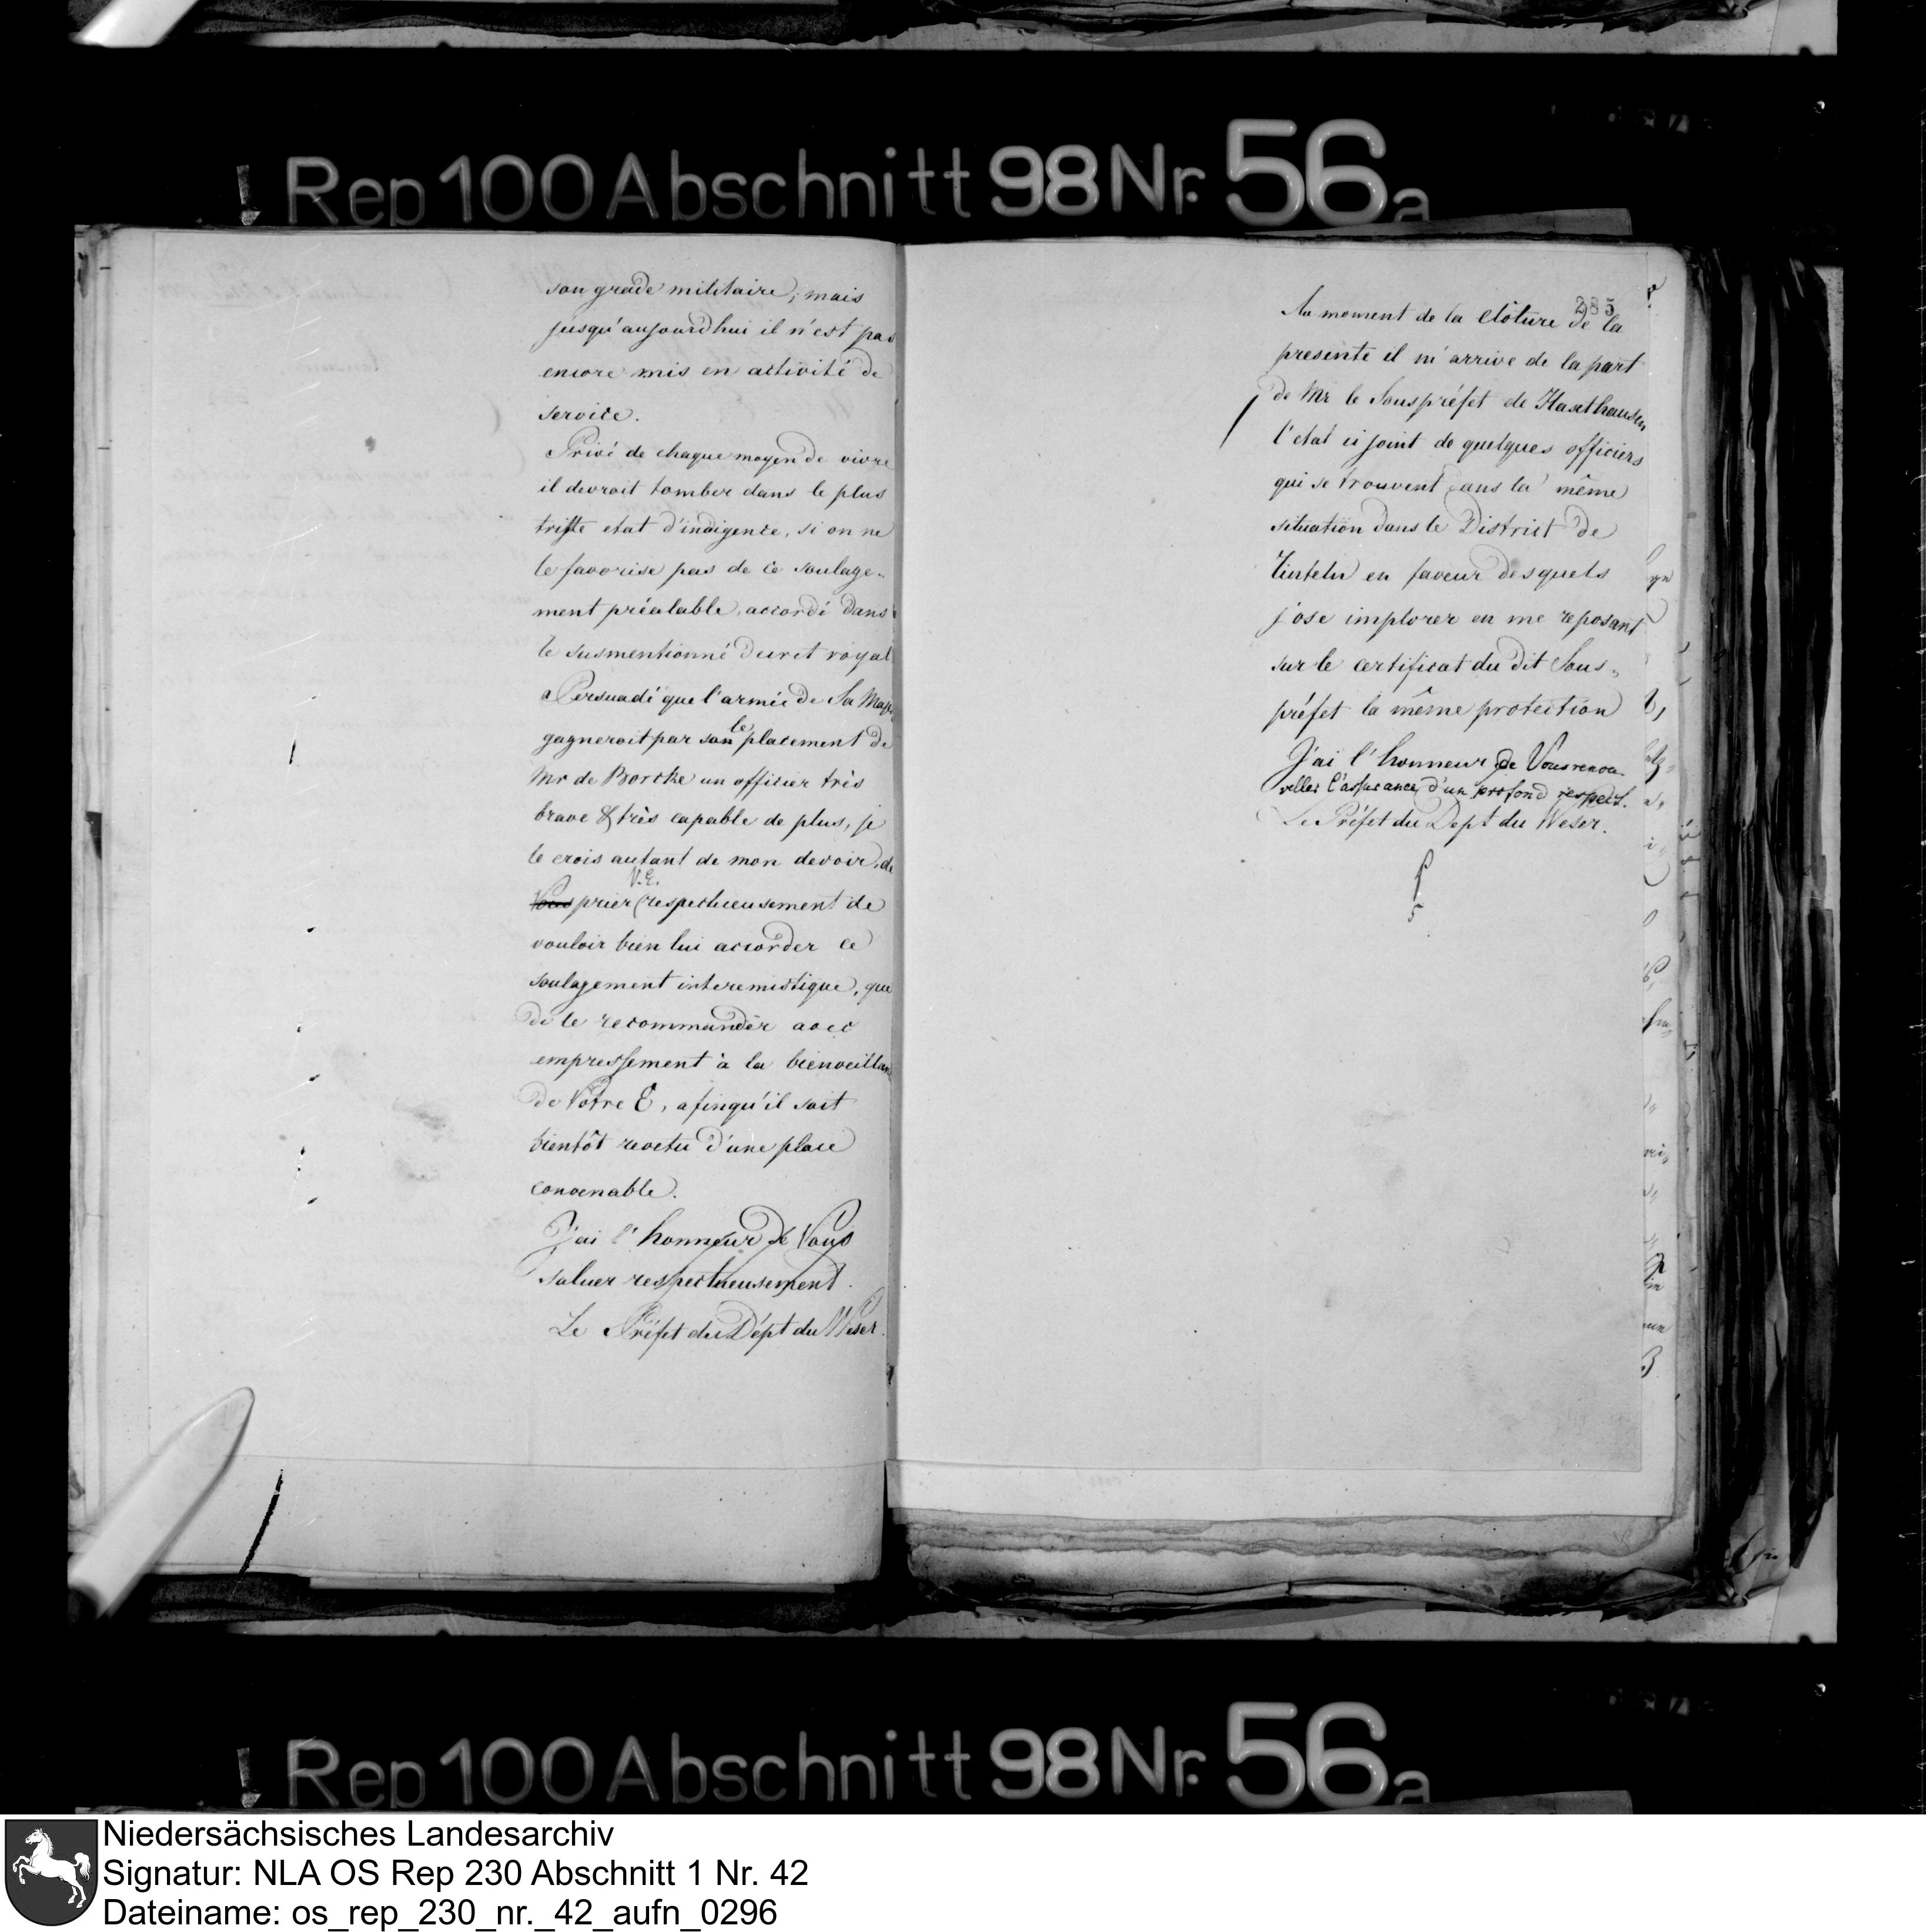 Rep 100 Abschnitt 98 Nr. 56a
son grade militaire, mais
jusqu'aujourdhui il n'est pas
encore mis en activité de
service.
Privé de chaque moyen de vivre
il devroit tomber dans le plus
triste etat d'indigence, si on ne
le favorise pas de ce soulage-
ment préalable, accordé dans
le susmentionné decret royal
Persuadé que l'armée de Sa Maje
gagneroit par son le placement de
Mr de Borcke un officier très
brave & très capable de plus, je
le crois autant de mon devoir, de
Vous prier V. E. respectueusement de
vouloir bien lui accorder ce
soulagement interemistique, que
de le recommander avec
empressement à la bienveillan
de Votre E, afinqu'il soit
bientôt revetu d'une place
convenable.
J'ai l'honneur de Vous
saluer respectueusement.
Le Préfet du Dépt du Weser.
285
Au moment de la clôture de la
presente il m'arrive de la part
de Mr le Souspréfet de Haxthausen
l'etat ci joint de quelques officiers
qui se trouvent dans la même
situation dans le District de
Rinteln en faveur desquels
j'ose implorer en me reposant
sur le certificat du dit Sous-
préfet la même protection
J'ai l'honneur de Vous renou-
veller l'assurance d'un profond respect.
Le Préfet du Dept du Weser.
Rep 100 Abschnitt 98 Nr. 56a
Niedersächsisches Landesarchiv
Signatur: NLA OS Rep 230 Abschnitt 1 Nr. 42
Dateiname: os_rep_230_nr._42_aufn_0296